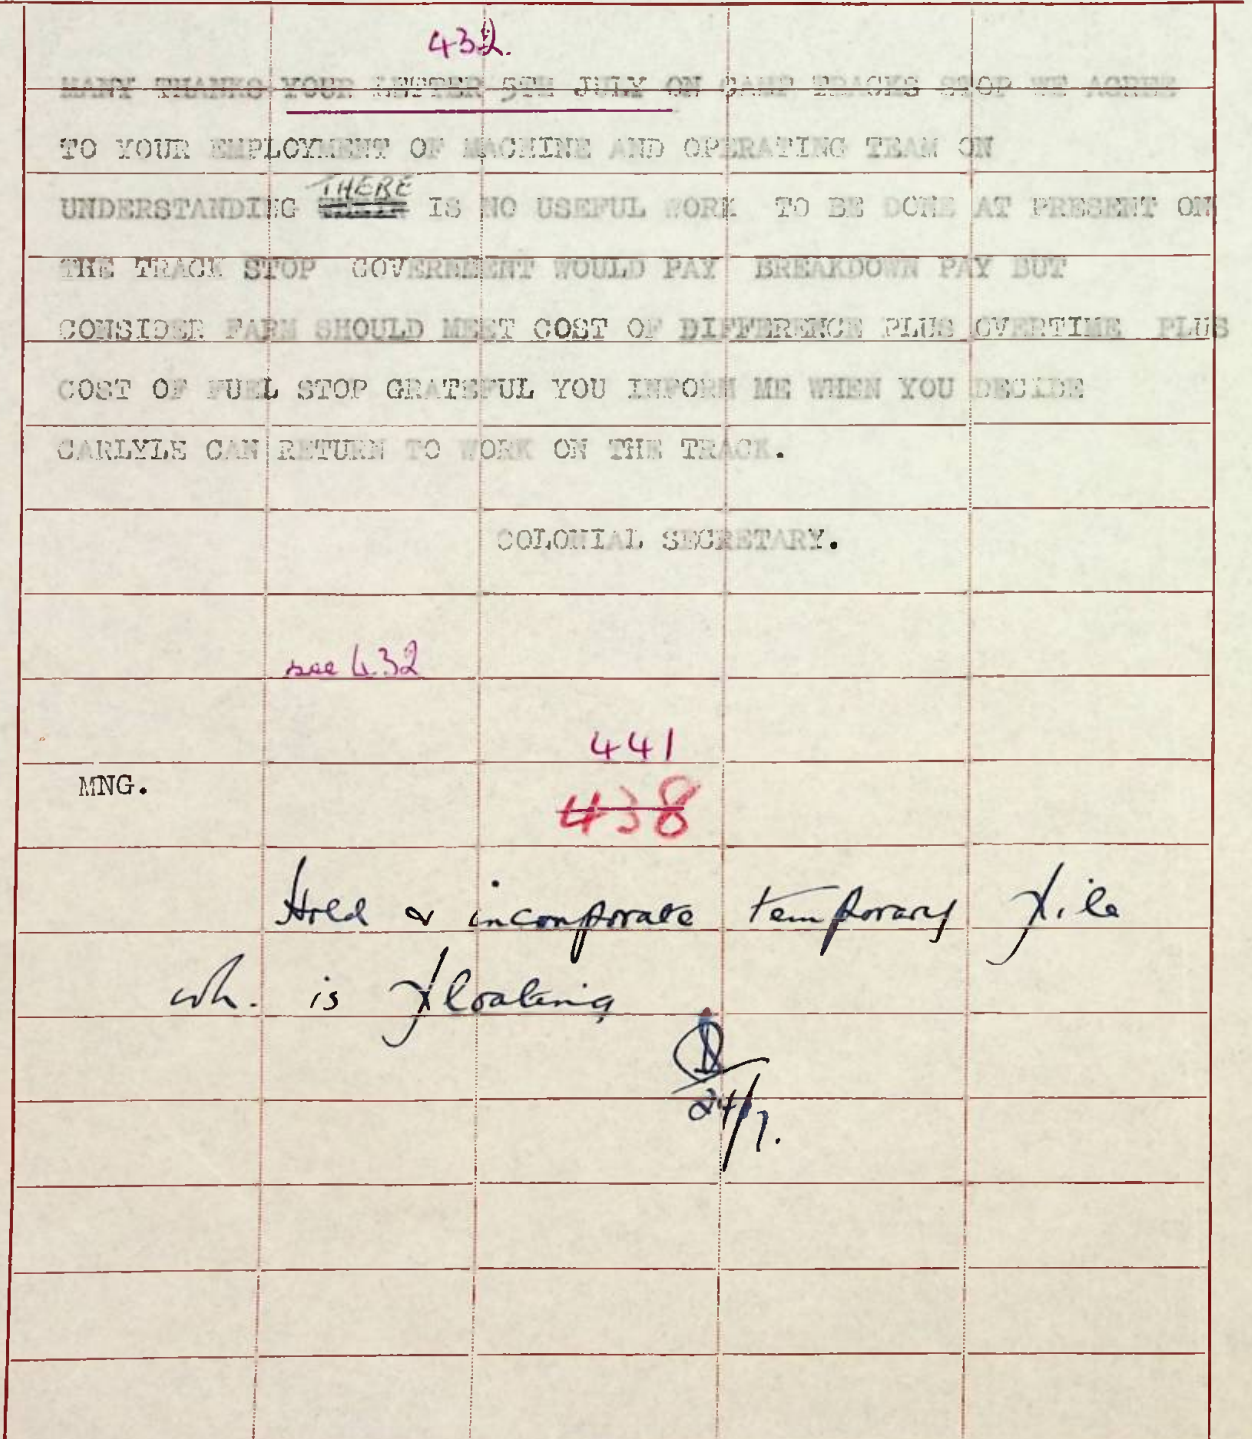 432.
MANY THANKS YOUR LETTER 5TH JULY ON CAMP TRACKS STOP WE AGREE
TO YOUR EMPLOYMENT OF MACHINE AND OPERATING TEAM ON
THERE
UNDERSTANDING THEIR IS NO USEFUL WORK TO BE DONE AT PRESENT ON
THE TRACK STOP GOVERNMENT WOULD PAY BREAKDOWN PAY BUT
CONSIDER FARM SHOULD MEET COST OF DIFFERENCE PLUS OVERTIME PLUS
COST OF FUEL STOP GRATEFUL YOU INFORM ME WHEN YOU DECIDE
CARLYLE CAN RETURN TO WORK ON THE TRACK.
COLONIAL SECRETARY.
see 432
441
MNG.
438
Hold & incorporate temporary file
wh. is floating
24/7.